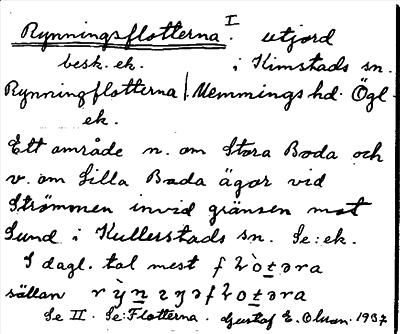 Rynningsflotterna I. utjord
besk. ek. i Kimstads sn.
Rynningflotterna | Memmings hd. Ögl.
ek.
Ett område n. om Stora Boda och
v. om Lilla Boda ägor vid
Strömmen invid gränsen mot
Lund i Kullerstads sn. Se: ek.
I dagl. tal mest
sällan
Se II. Se: Flotterna. Gustaf E. Olsson. 1937